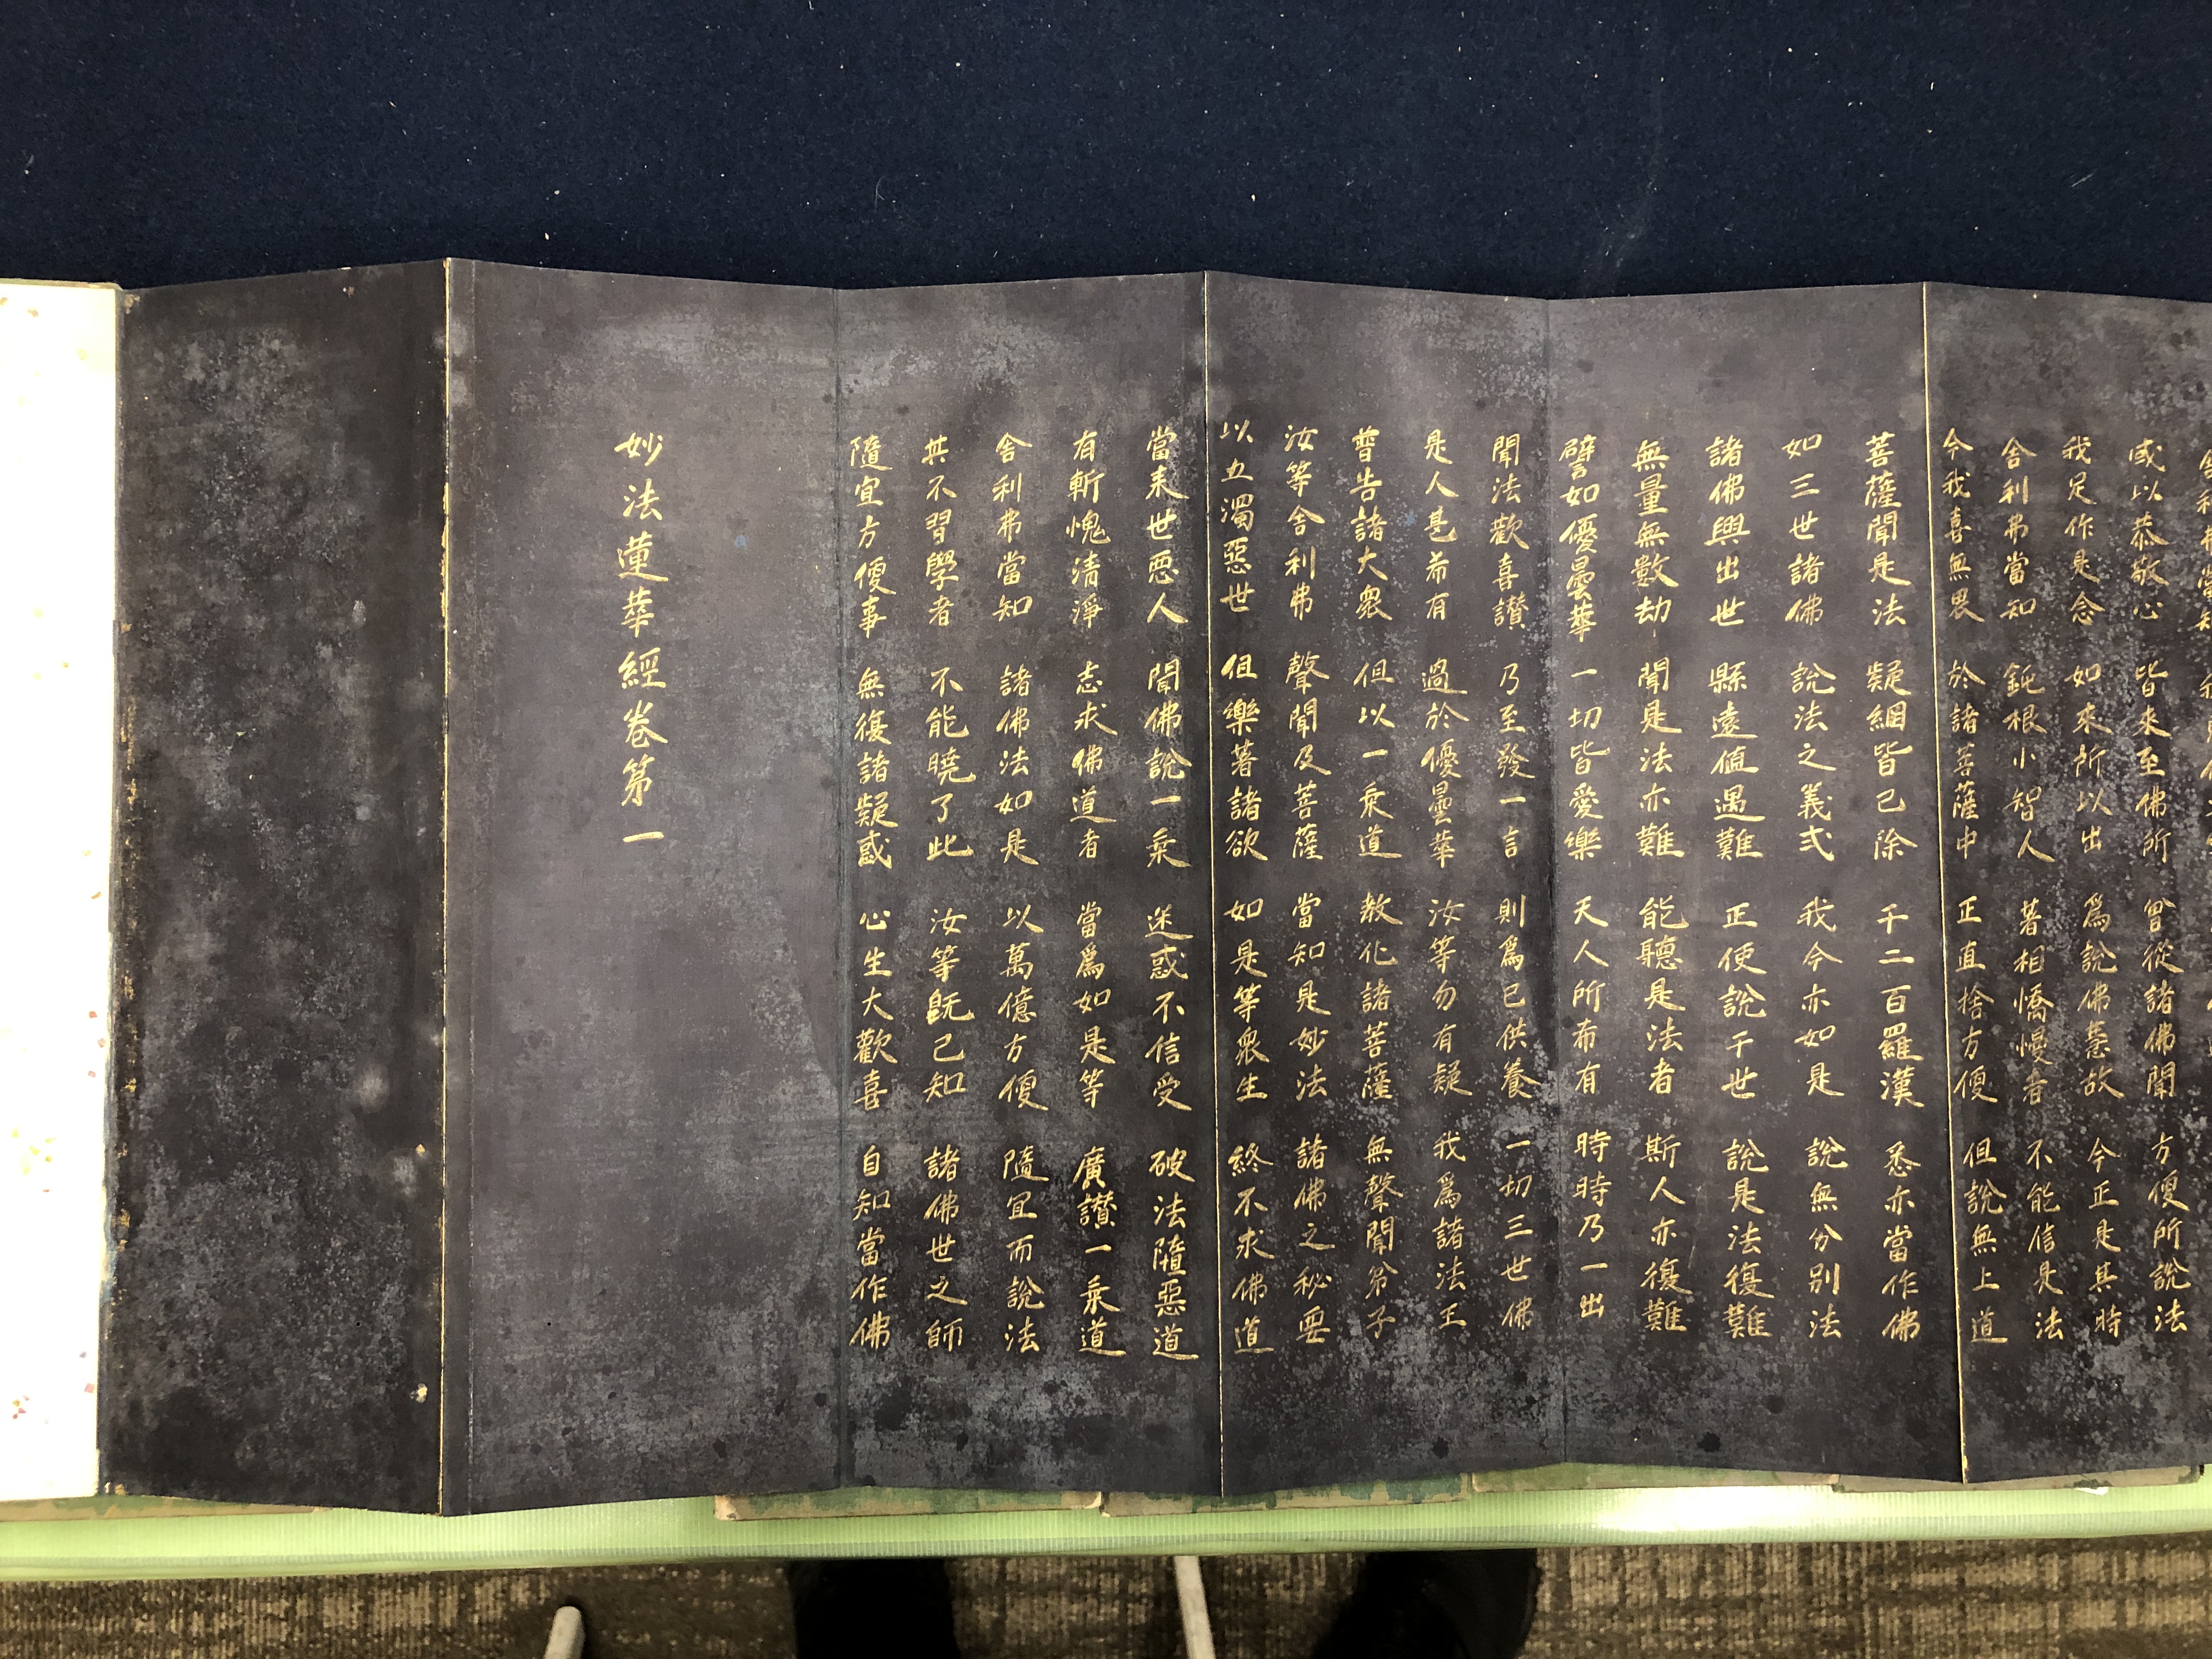 或以恭敬心 皆來至佛所 曾從諸佛聞 方便所說法
我足作是念 如來所以出 爲說佛慧故 今正是其時
舍利弗當知 鈍根小智人 著相憍慢者 不能信是法
今我喜無畏 於諸菩薩中 正直捨方便 但說無上道
菩薩聞是法 疑網皆已除 千二百羅漢 悉亦當作佛
如三世諸佛 說法之義式 我今亦如是 說無分別法
諸佛興出世 縣遠値遇難 正使說于世 說是法復難
無量無數劫 聞是法亦難 能聽是法者 斯人亦復難
譬如優曇華 一切皆愛樂 天人所布有 時時乃一出
聞法歡喜讃 乃至發一言 則爲已供養 一切三世佛
是人甚希有 過於優曇華 汝等勿有疑 我爲諸法王
普告諸大衆 但以一乗道 教化諸菩薩 無聲聞弟子
汝等舍利弗 聲聞及菩薩 當知是妙法 諸佛之秘要
以五濁惡世 但樂著諸欲 如是等衆生 終不求佛道
當来世悪人 聞佛說一乗 迷惑不信受 破法墮惡道
有斬愧清淨 志求佛道者 當爲如是等 廣讃一乗道
舍利弗當知 諸佛法如是 以萬億方便 隨宜而說法
其不習學者 不能曉了此 汝等既已知 諸佛世之師
隨宜方便事 無復諸疑惑 心生大歡喜 自知當作佛
妙法蓮華經卷第一